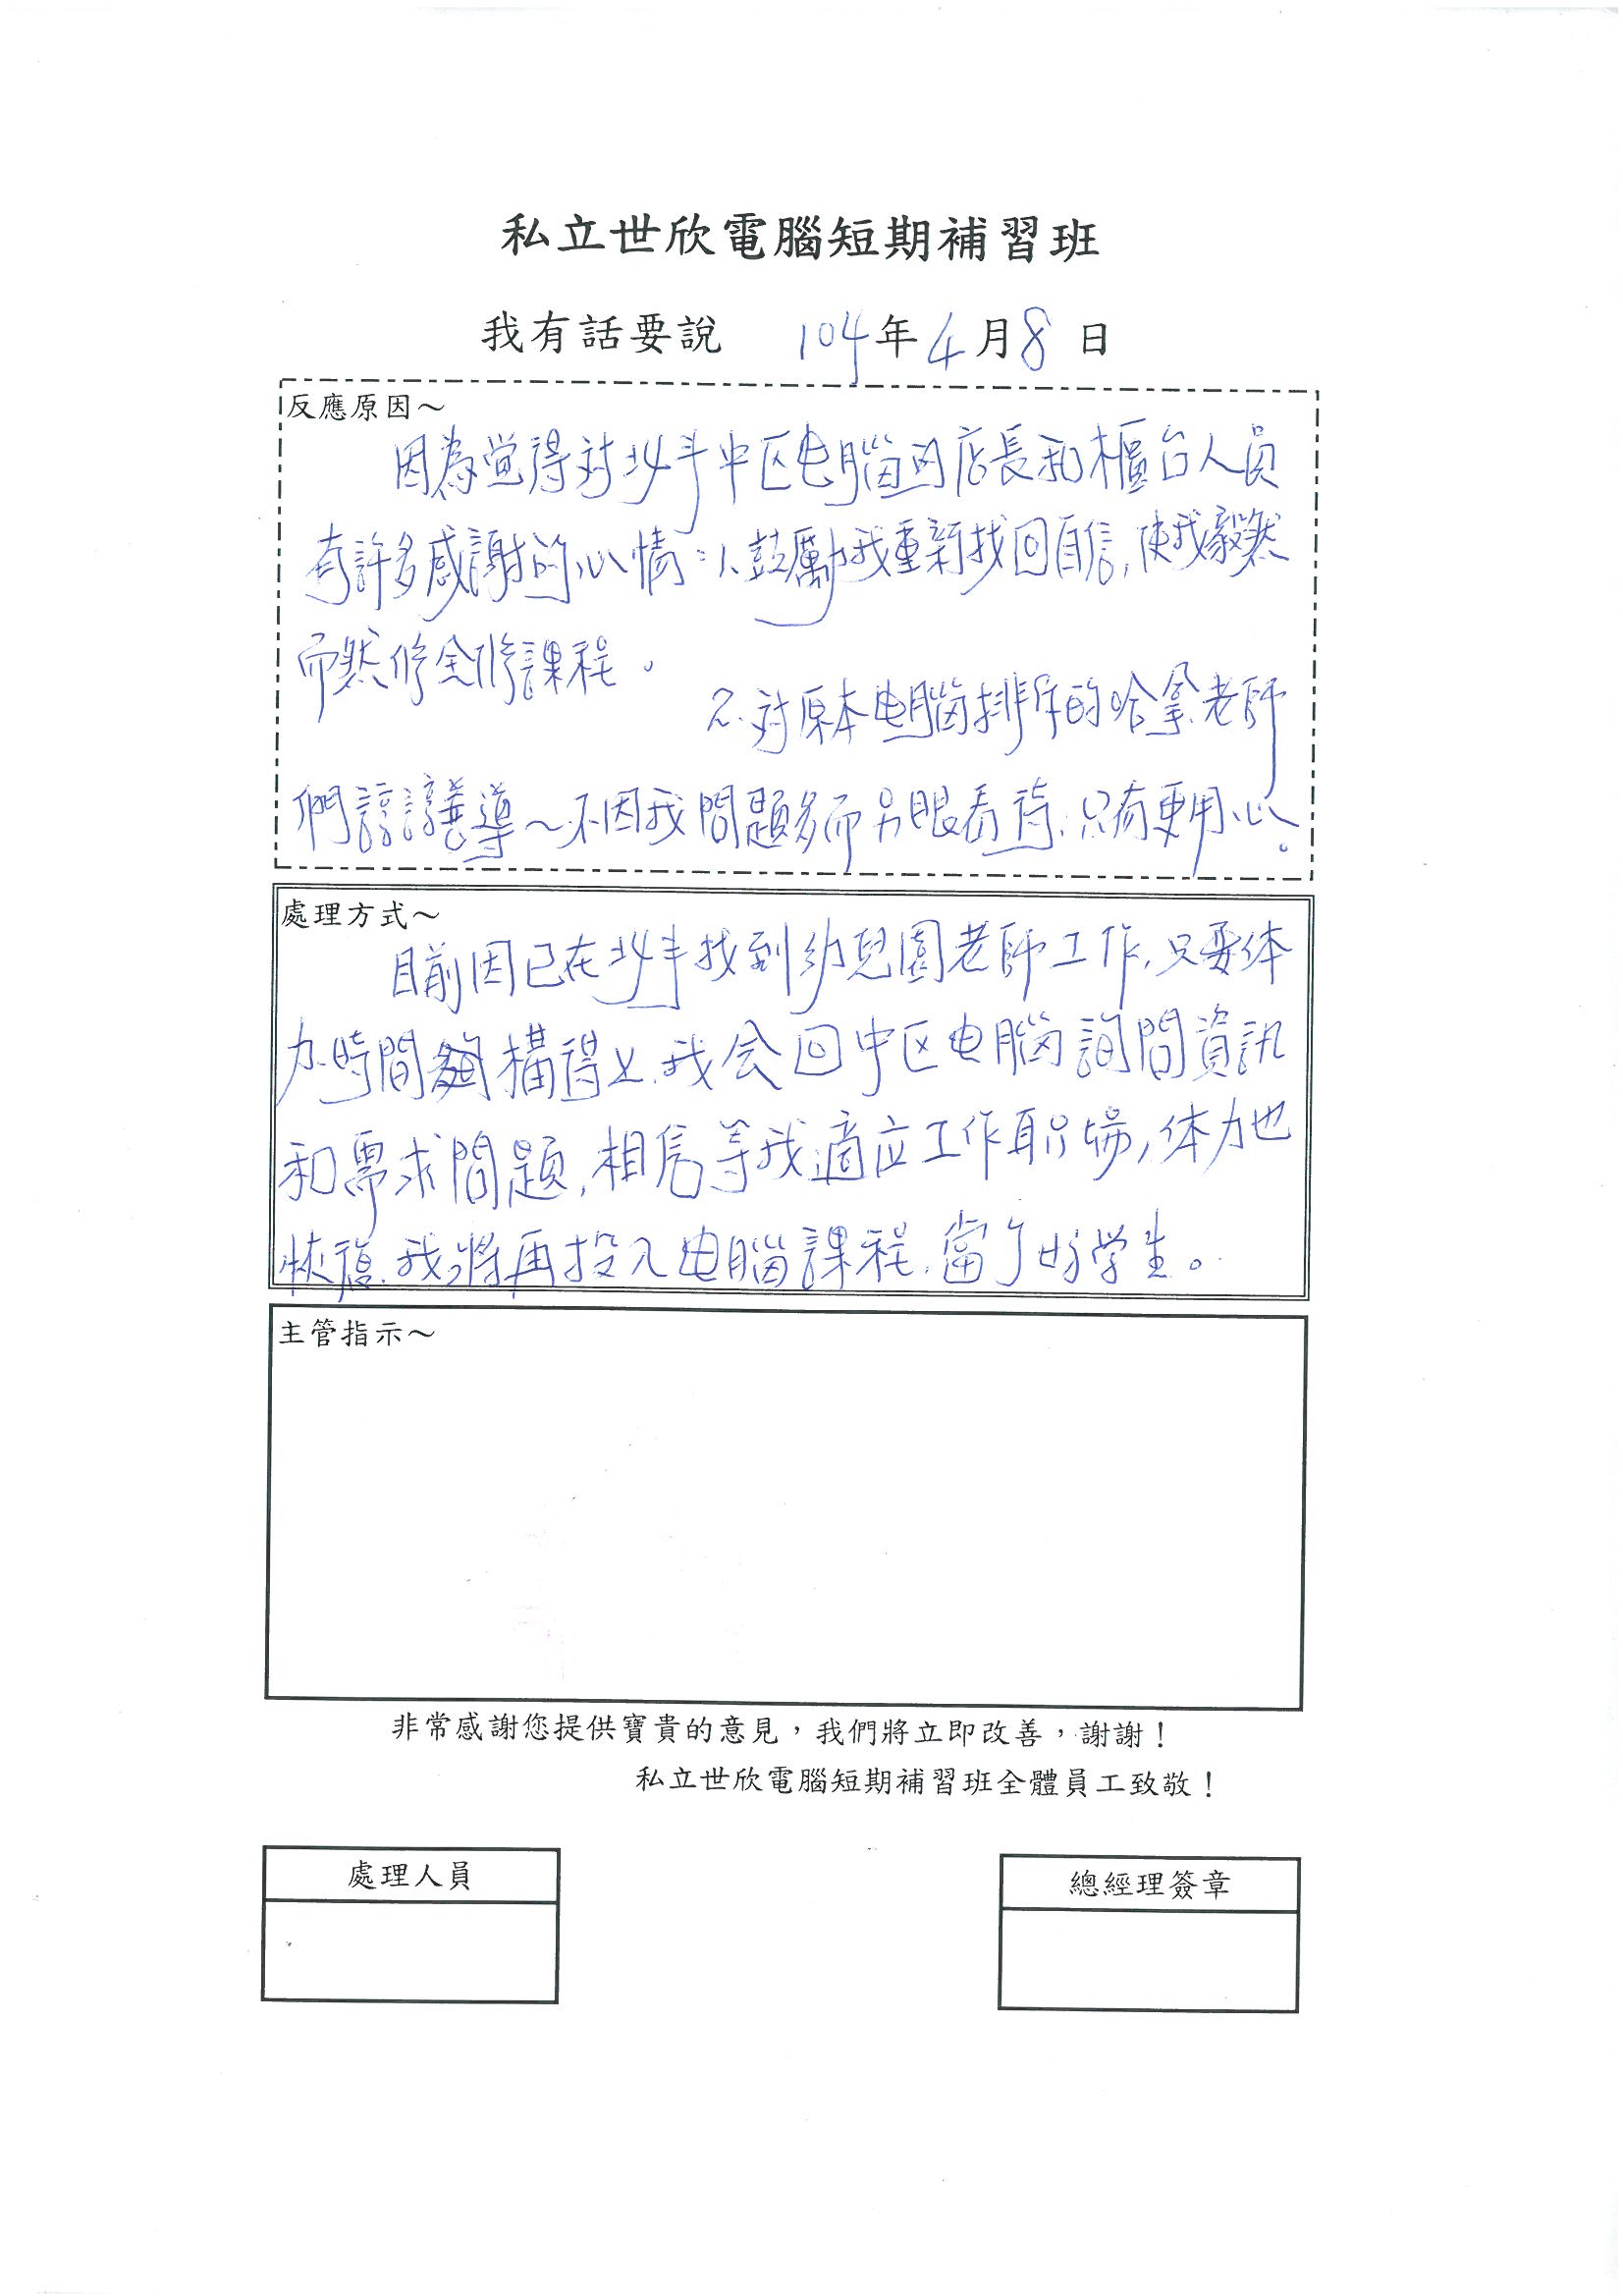 私立世欣電腦短期補習班
我有話要說 104年4月8日
反應原因～
因為覚得对北斗中区电腦的店長和櫃台人員
有許多感謝的心情:1、鼓勵我重新找回自信,使我毅然
而然修全修課程。
2.对原本电腦排斥的哈拿老師
們諄諄善導~不因我問題多而另眼看待,只有更用心。
處理方式～
目前因已在北斗找到幼兒園老師工作,只要体
力、時間夠構得上,我会回中区电腦詢問資訊
和需求問題,相信等我適应工作职場,体力也
恢復,我將再投入电腦課程,當个好学生。
主管指示～
非常感謝您提供寶貴的意見，我們將立即改善，謝謝！
私立世欣電腦短期補習班全體員工致敬！
處理人員
總經理簽章